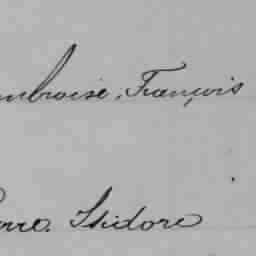 mbroise, François
erre. Isidore